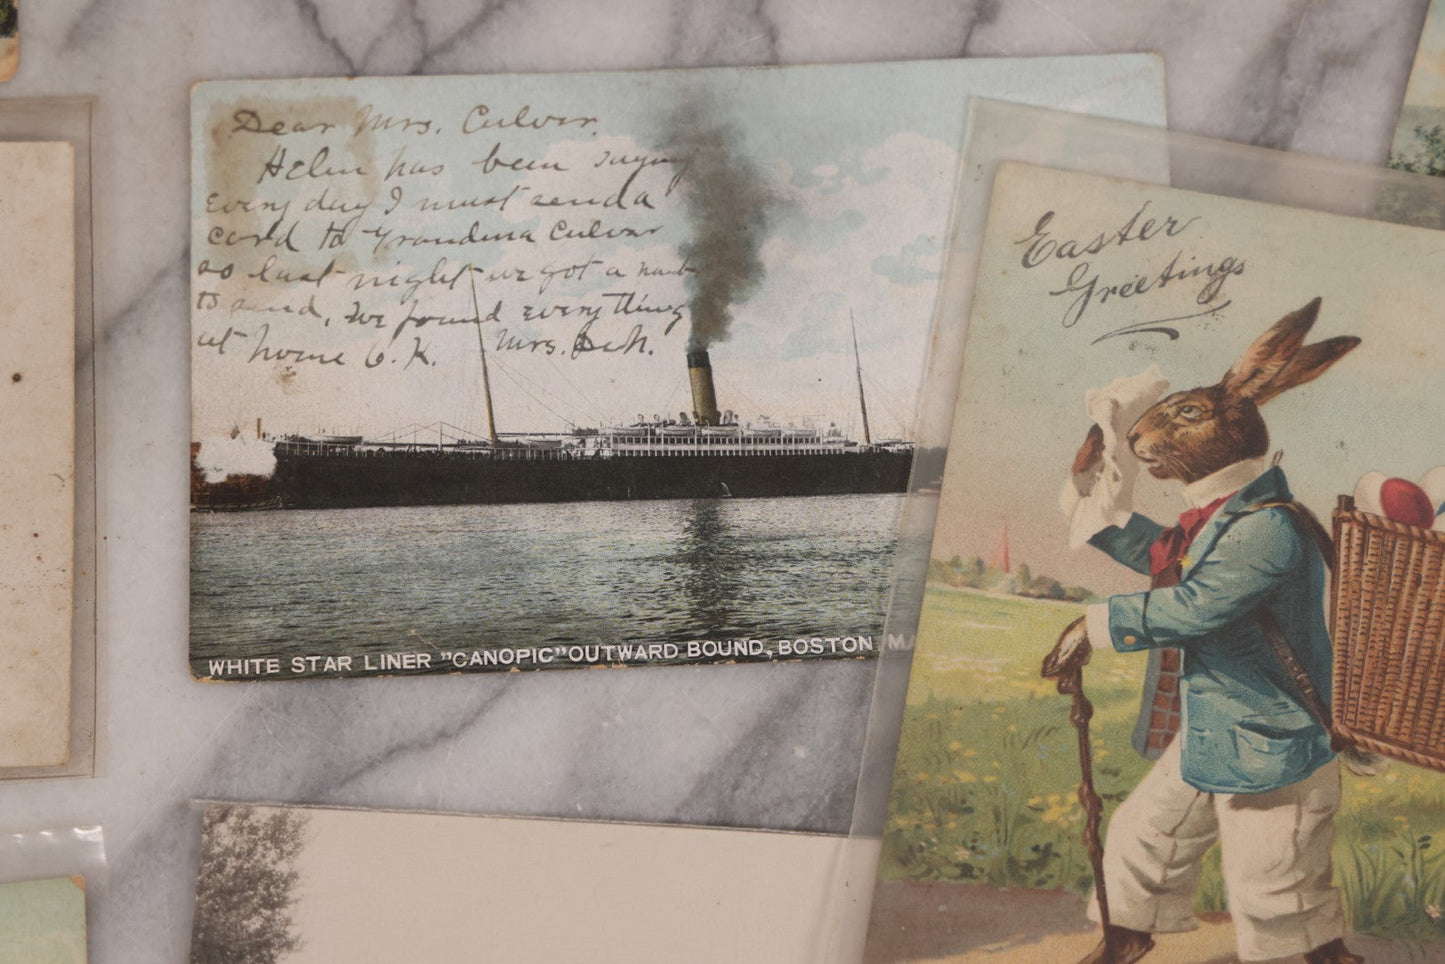 Dear Mrs. Culver.
Helen has been saying
every day I must send a
card to Grandma Culver
so last night we got a
to send, We found everything
at home O.K. Mrs.
WHITE STAR LINER "CANOPIC" OUTWARD BOUND, BOSTON MA
Easter
Greetings